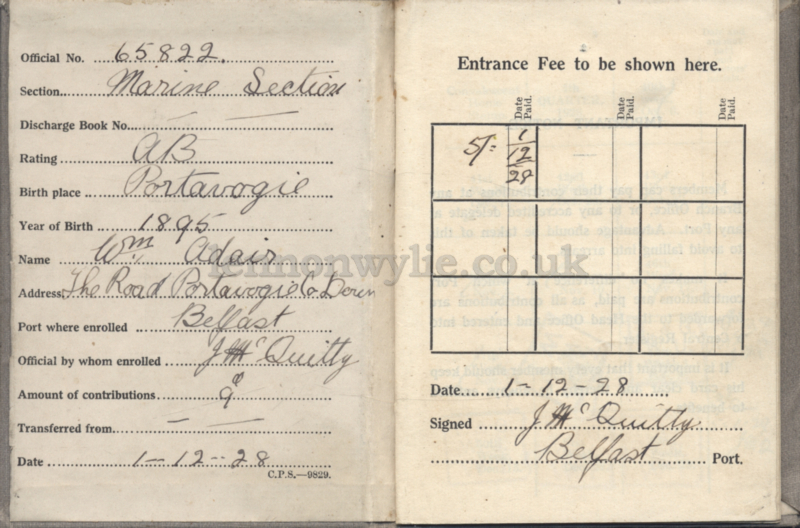 Official No. 65822.
Section. Marine Section
Discharge Book No. — —
Rating AB
Birth place Portavogie
Year of Birth 1895
Name Wm Adair
Address The Road Portavogie Co Down
Port where enrolled Belfast
Official by whom enrolled J McQuitty
Amount of contributions 9d
Transferred from — —
Date 1-12-28
C.P.S.—9829.
Entrance Fee to be shown here.
Date Paid. Date Paid. Date Paid.
5/- 1/12/28
Date 1-12-28
Signed J McQuitty
Belfast Port.
lennonwylie.co.uk